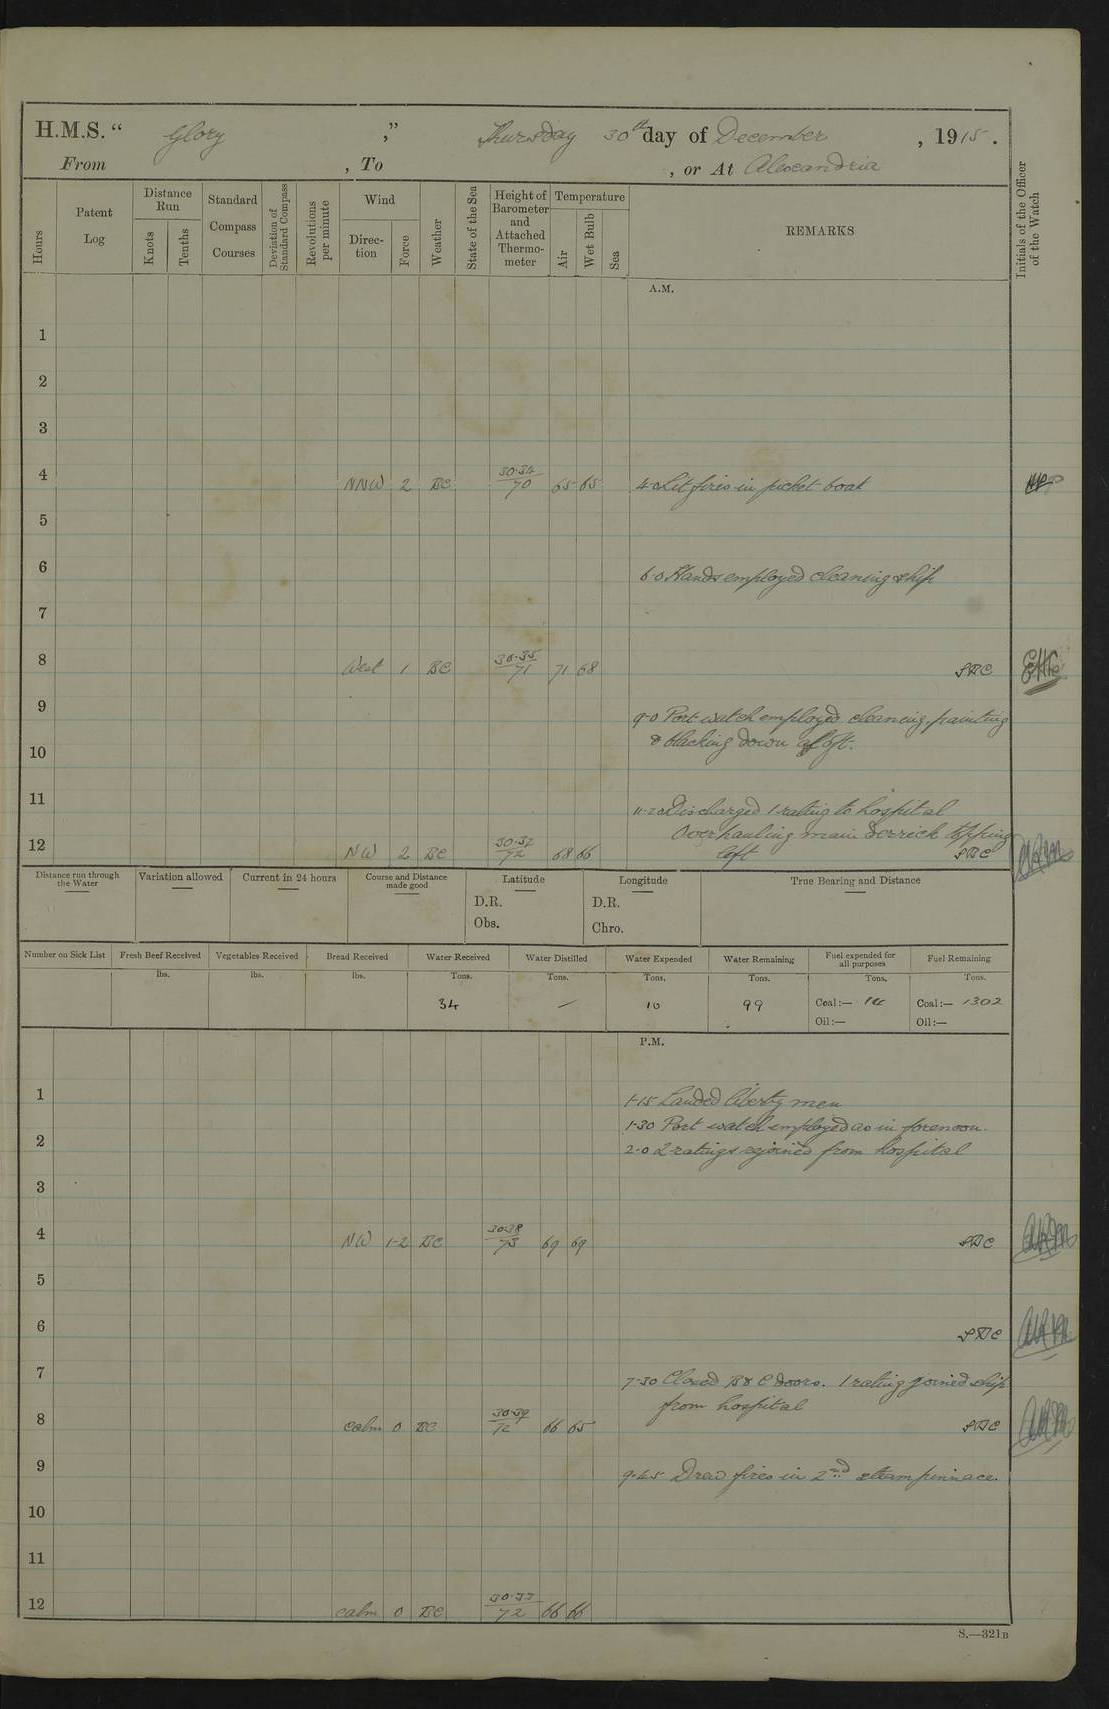 H.M.S. “ Glory ,” Thursday 30th day of December , 1915 .
From , To , or At Alexandria
Hours Patent Log Distance Run Knots Tenths Standard Compass Courses Deviation of Standard Compass Revolutions per minute Wind Direc-tion Force Weather State of the Sea Height of Barometer and Attached Thermo-meter Temperature Air Wet Bulb Sea REMARKS Initials of the Officer of the Watch
A.M.
1
2
3
4 NNW 2 BC 30.34 70 65 65 4. Lit fires in picket boat
5
6 6.0 Hands employed cleaning ship
7
8 West 1 BC 30.35 71 71 68
9 9.0 Port watch employed cleaning, painting
& blacking down aloft.
10
11 11.20 Discharged 1 rating to hospital
Overhauling main derrick topping
12 NW 2 BC 30.32 72 68 66 left
Distance run through the Water Variation allowed Current in 24 hours Course and Distance made good Latitude Longitude True Bearing and Distance
D.R. D.R.
Obs. Chro.
Number on Sick List Fresh Beef Received Vegetables Received Bread Received Water Received Water Distilled Water Expended Water Remaining Fuel expended for all purposes Fuel Remaining
lbs. lbs. lbs. Tons. Tons. Tons. Tons. Tons. Tons.
34 — 10 99 Coal:— Coal:— 1302
Oil:— Oil:—
P.M.
1 1.15 Landed liberty men
1.30 Port watch employed as in forenoon.
2 2.0 2 ratings rejoined from hospital
3
4 NW 1-2 BC 30.38 73 69 69
5
6
7 7.30 Closed B & C doors. 1 rating joined ship
from hospital
8 calm 0 BC 30.39 72 66 65
9 9.45 Drew fires in 2nd steam pinnace.
10
11
12 calm 0 BC 72 66 66
S.—321B